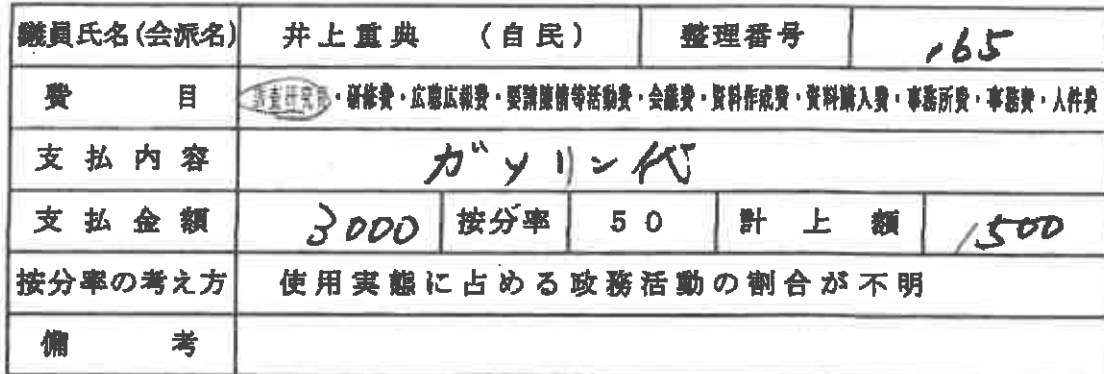 議員氏名(会派名) 井上重典 (自民) 整理番号 165
費目 調査研究費・研修費・広聴広報費・要請陳情等活動費・会議費・資料作成費・資料購入費・事務所費・事務費・人件費
支払内容 ガソリン代
支払金額 3000 按分率 50 計上額 1500
按分率の考え方 使用実態に占める政務活動の割合が不明
備考